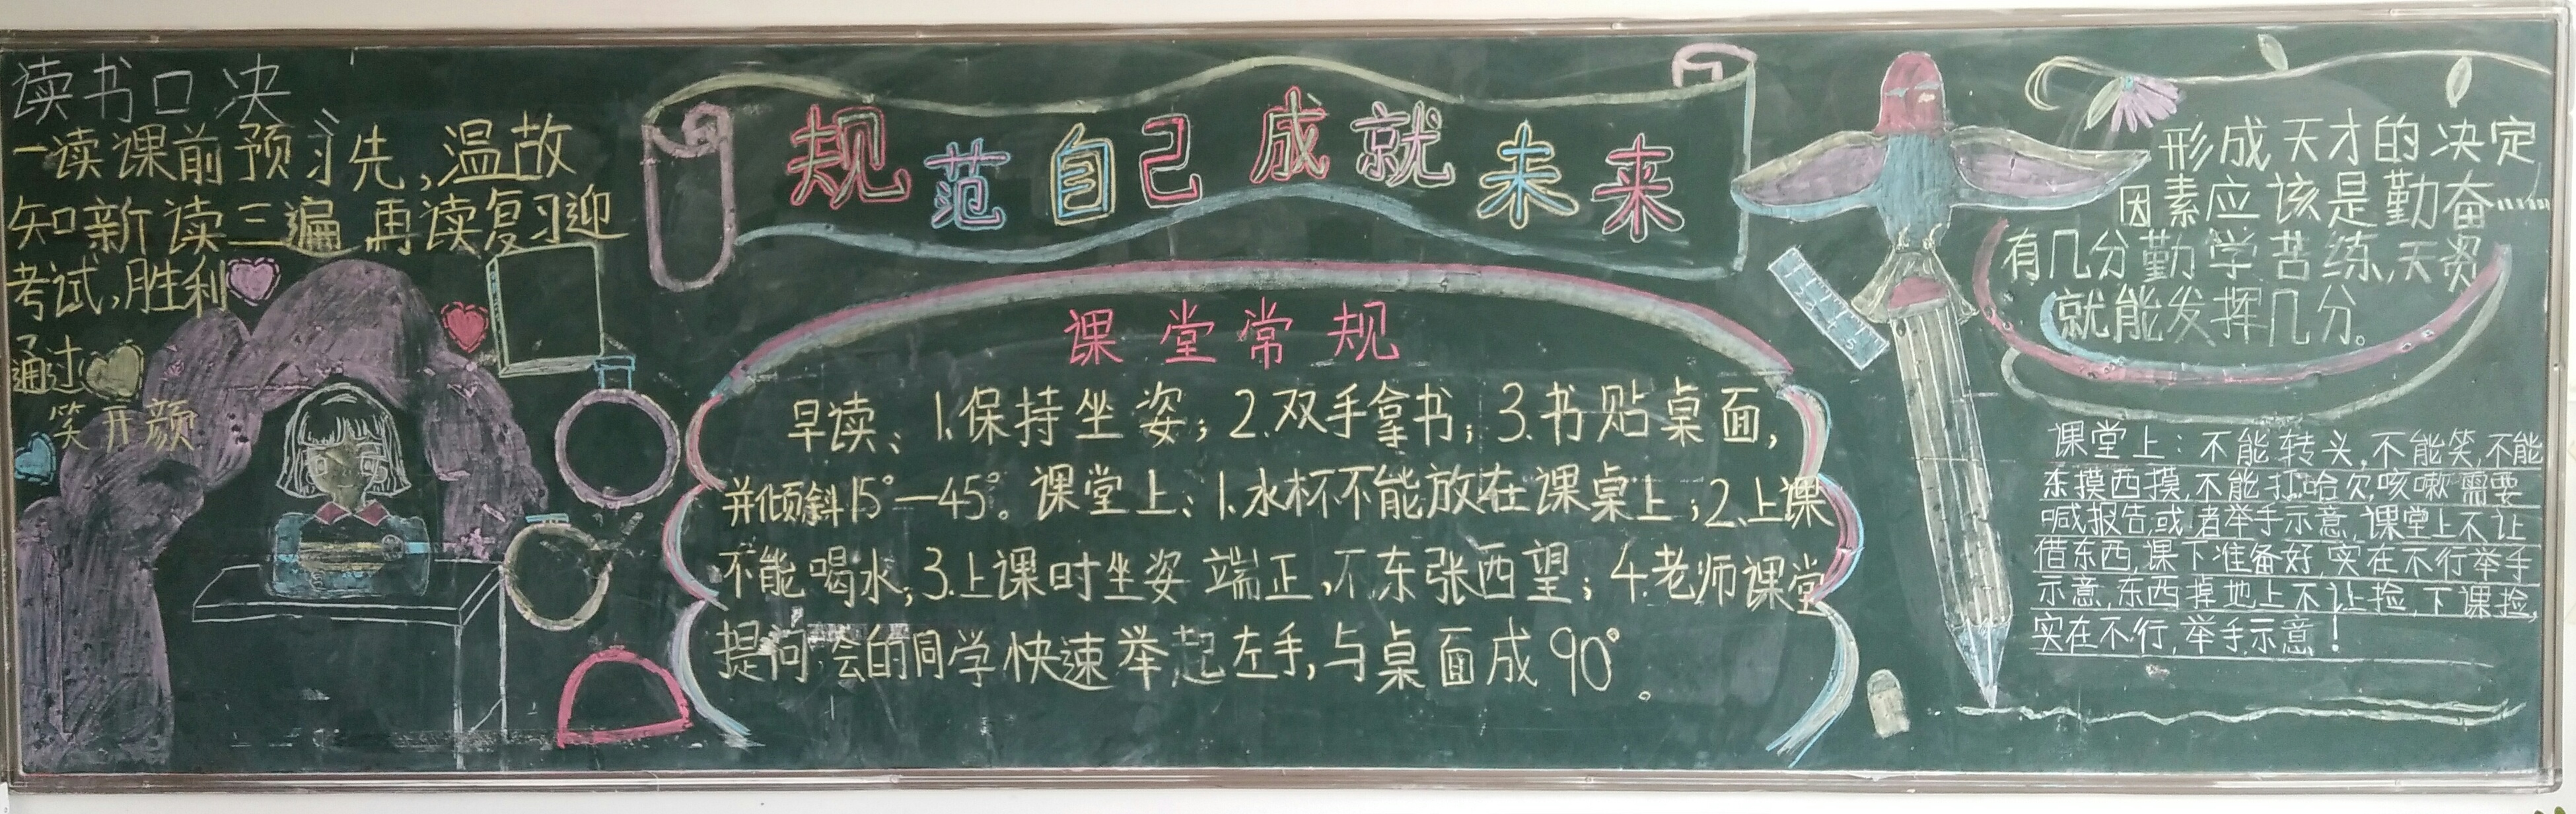 读书口决
一读课前预习先,温故
知新读三遍 再读复习迎
考试,胜利
通过
笑开颜
规范自己成就未来
课堂常规
早读、1.保持坐姿;2.双手拿书;3.书贴桌面,
并倾斜15°—45°。课堂上:1.水杯不能放在课桌上;2.上课
不能喝水;3.上课时坐姿端正,不东张西望;4.老师课堂
提问,会的同学快速举起左手,与桌面成90°。
形成天才的决定
因素应该是勤奋……
有几分勤学苦练,天资
就能发挥几分。
课堂上:不能转头,不能笑,不能
东摸西摸,不能打哈欠,咳嗽需要
喊报告,或者举手示意,课堂上不让
借东西,课下准备好,实在不行举手
示意,东西掉地上不让捡,下课捡,
实在不行,举手示意!